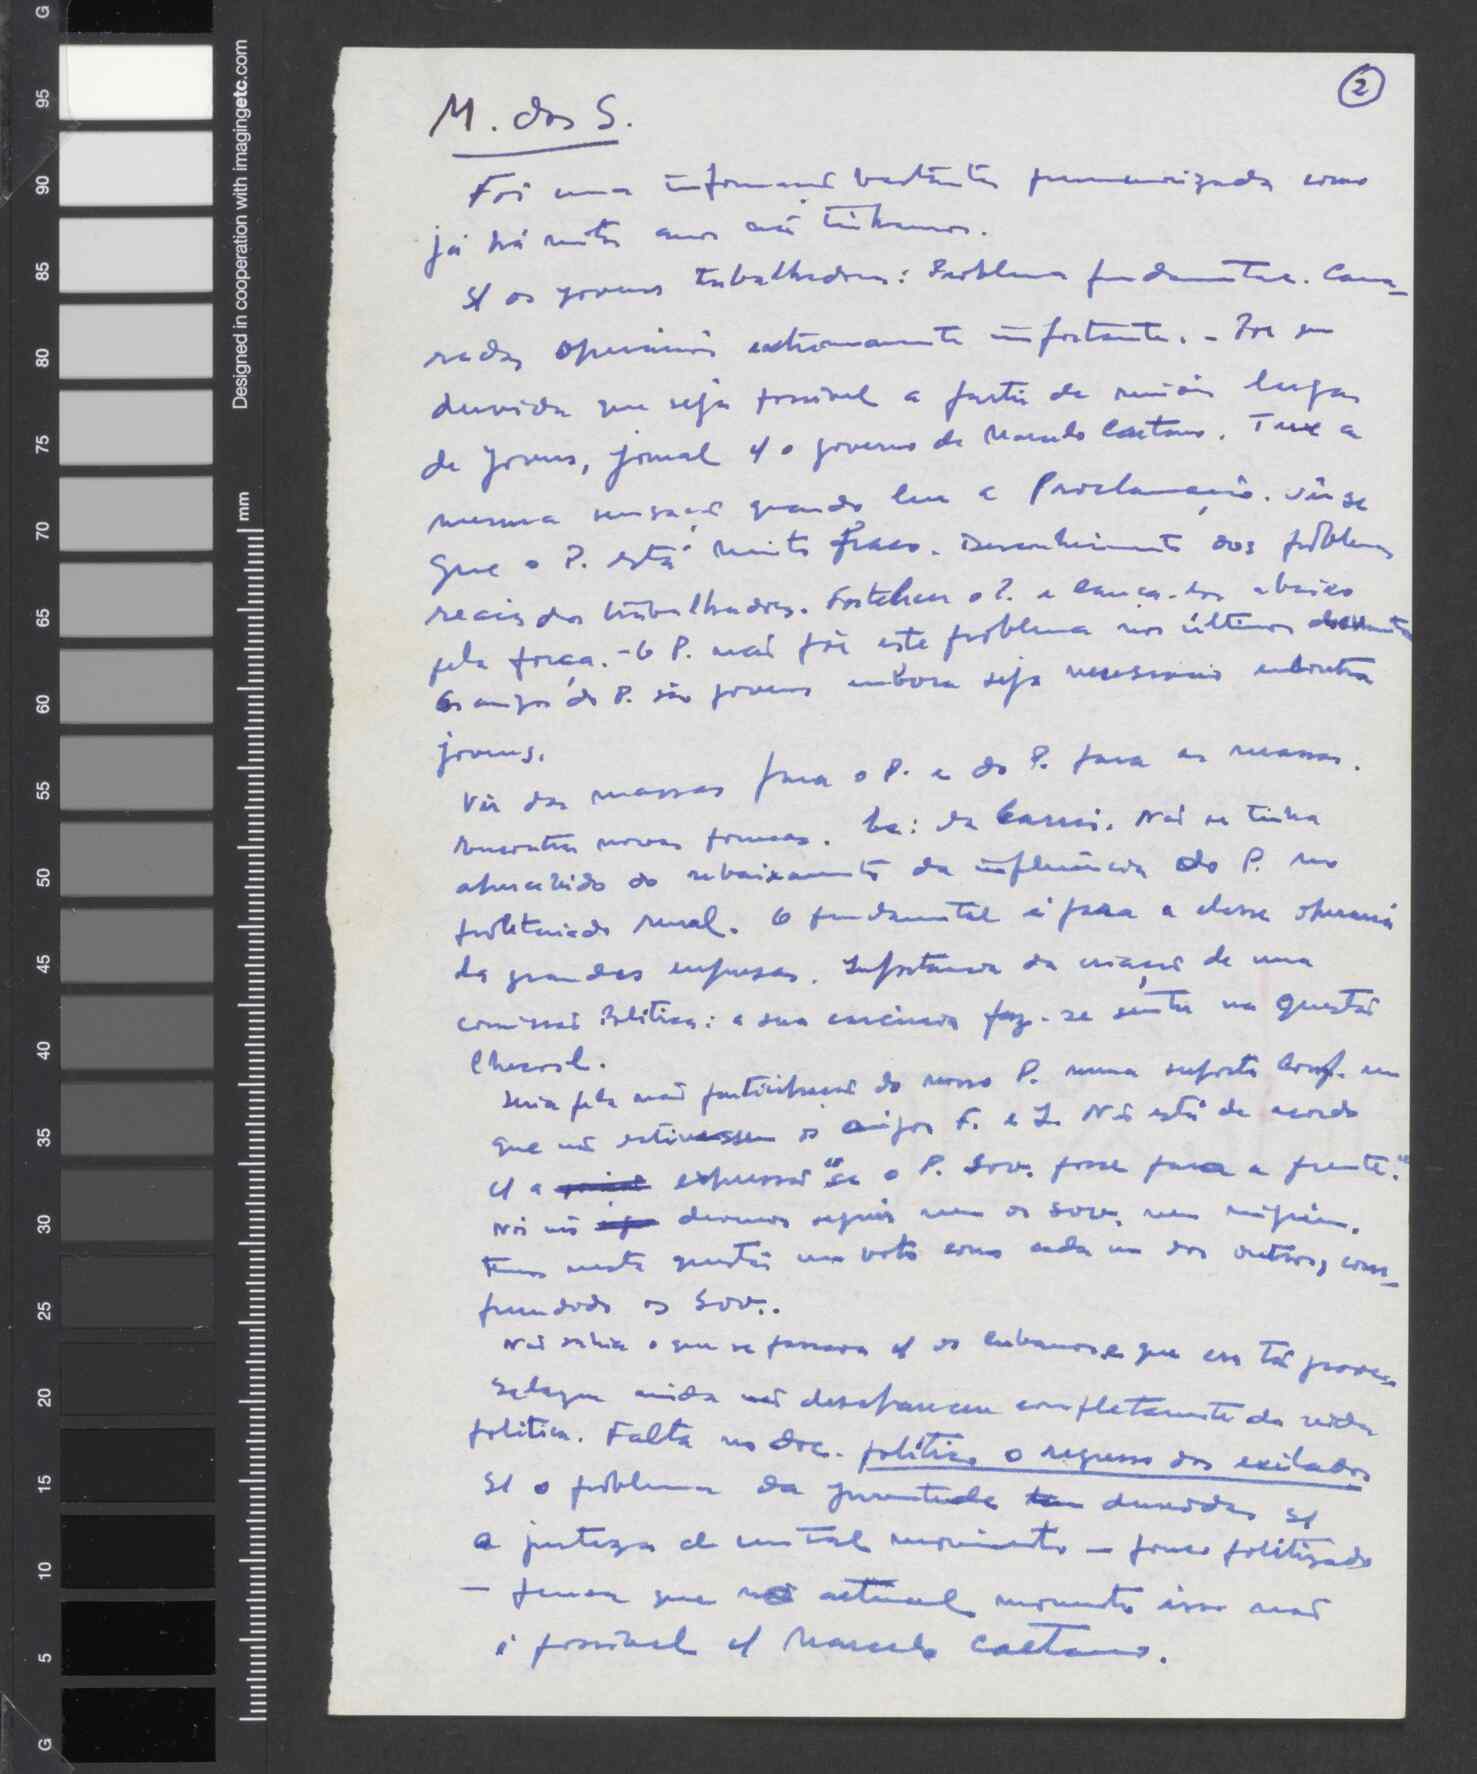 2
M. dos S.
Foi uma informação bastante pormenorizada como
já há muitos anos não tinhamos.
S/ os jovens trabalhadores: Problema fundamental. Cama-
radas operários extremamente importante. - Por
duvida que seja possivel a partir de
de jovens, jornal c/ o governo de Marcelo Caetano. Teve a
mesma sensação quando leu a Proclamação. Vê-se
que o P. está muito fraco. Desconhecimento dos problemas
reais dos trabalhadores. o P. e abaixo
pela força. - O P. não pôs este problema nos últimos
Os amigos do P. são jovens embora seja necessario
jovens.
Vir das massas para o P. e do P. para as massas.
Encontrar novas formas. da Não se tinha
apercebido do rebaixamento da influência do P. no
proletariado rural. O fundamental é para a classe operária
das grandes empresas. Importancia da criação de uma
comissão Politica: a sua carência faz-se sentir na questão
Checosl.
Seria pela não participação do nosso P. numa suposta Conf. em
que não estivessem os amigos F. e I. Não está de acordo
c/ a expressão "se o P. Sov. fosse para a frente."
Nós não devemos seguir nem os sov. nem ninguém.
Temos nesta questão um voto como cada um dos outros, com-
preendido os Sov..
Não sabia o que se passava c/ os cubanos e que era tão grave.
Salazar ainda não desapareceu completamente da vida
politica. Falta no doc. politico o regresso dos exilados
S/ o problema da juventude tem duvidas s/
a justeza de um tal movimento — pouco politizado
— pensa que no actual momento isso não
é possivel c/ Marcelo Caetano.
Designed in cooperation with imagingetc.com
mm
G
95
90
85
80
75
70
65
60
55
50
45
40
35
30
25
20
15
10
5
G